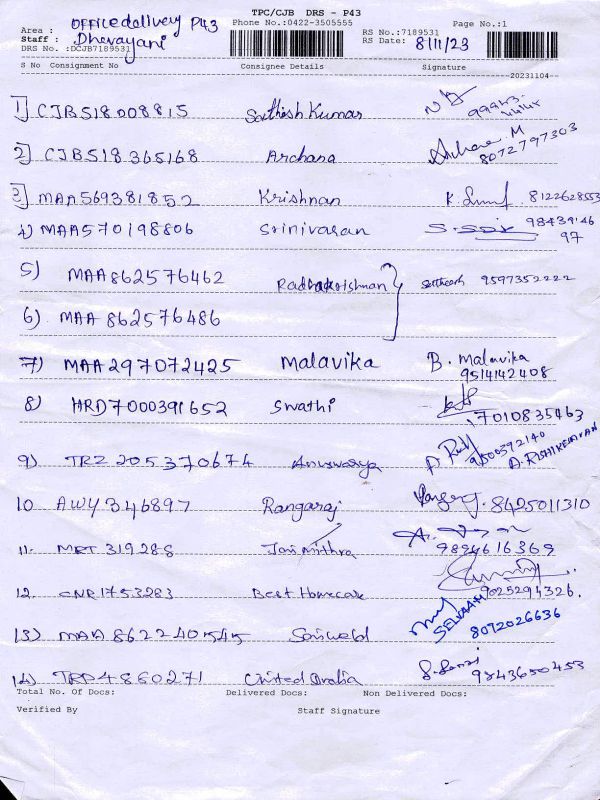 TPC/CJB DRS - P43
Area : OFFICE delivery P43
Phone No.:0422-3505555
Page No.:1
Staff : Dhevayani
RS No.:7189531
DRS No. :DCJB7189531
RS Date: 8/11/23
S No Consignment No Consignee Details Signature
20231104
1] CJB518008815 Sathish Kumar
2] CJB518365168 Archana Archana M 8072797303
3] MAA569381852 Krishnan K. 8122628553
4) MAA570198806 Srinivasan 98439146
97
5) MAA862576462 Radhakrishnan Sathish 9597352222
6) MAA 862576486
7) MAA297072425 Malavika B. Malavika
9514142408
8) HRD7000391652 Swathi 7010835463
9) TRZ 205370674 9500392140
A. RISHIKESAVAN
10 AWY346897 Rangaraj 8425011310
11. MRT 319288 Jaimithra 9894616369
12. CNR1753283 Best Homecare 9025294326.
13) MAA 862240545 Saiweld 8072026636
14) TRP4860271 United India 9843650453
Total No. Of Docs: Delivered Docs: Non Delivered Docs:
Verified By Staff Signature